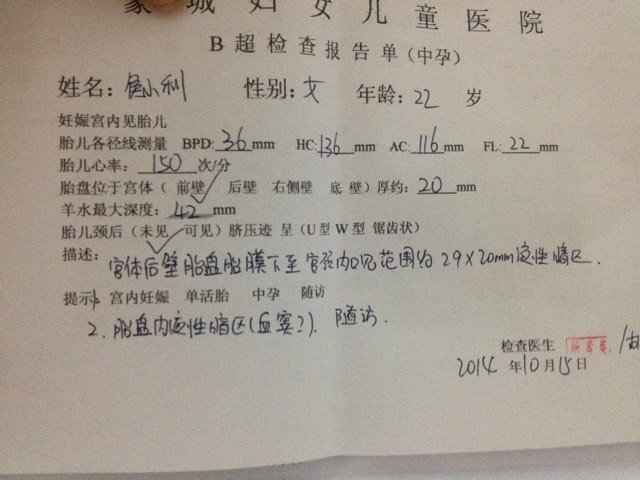 蒙城妇女儿童医院
B超检查报告单(中孕)
姓名:侯小利 性别:女 年龄:22 岁
妊娠宫内见胎儿
胎儿各径线测量 BPD:36mm HC:136mm AC:116mm FL:22mm
胎儿心率:150次/分
胎盘位于宫体(前壁 后壁 右侧壁 底壁)厚约:20mm
羊水最大深度:42mm
胎儿颈后(未见 可见)脐压迹 呈(U型 W型 锯齿状)
描述:宫体后壁胎盘胎膜下至宫颈内口见范围约29×20mm液性暗区.
提示 宫内妊娠 单活胎 中孕 随访
2、胎盘内液性暗区(血窦?). 随访.
检查医生
2014年10月15日